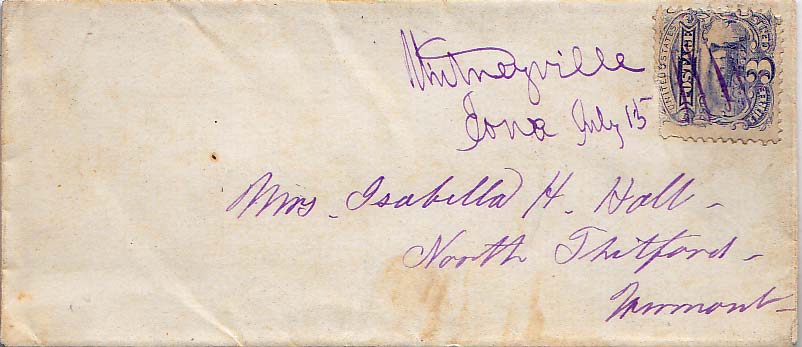 Whitneyville
Iowa July 15
UNITED STATES
POSTAGE
Mrs. Isabella H. Hall -
North Thetford -
Vermont -